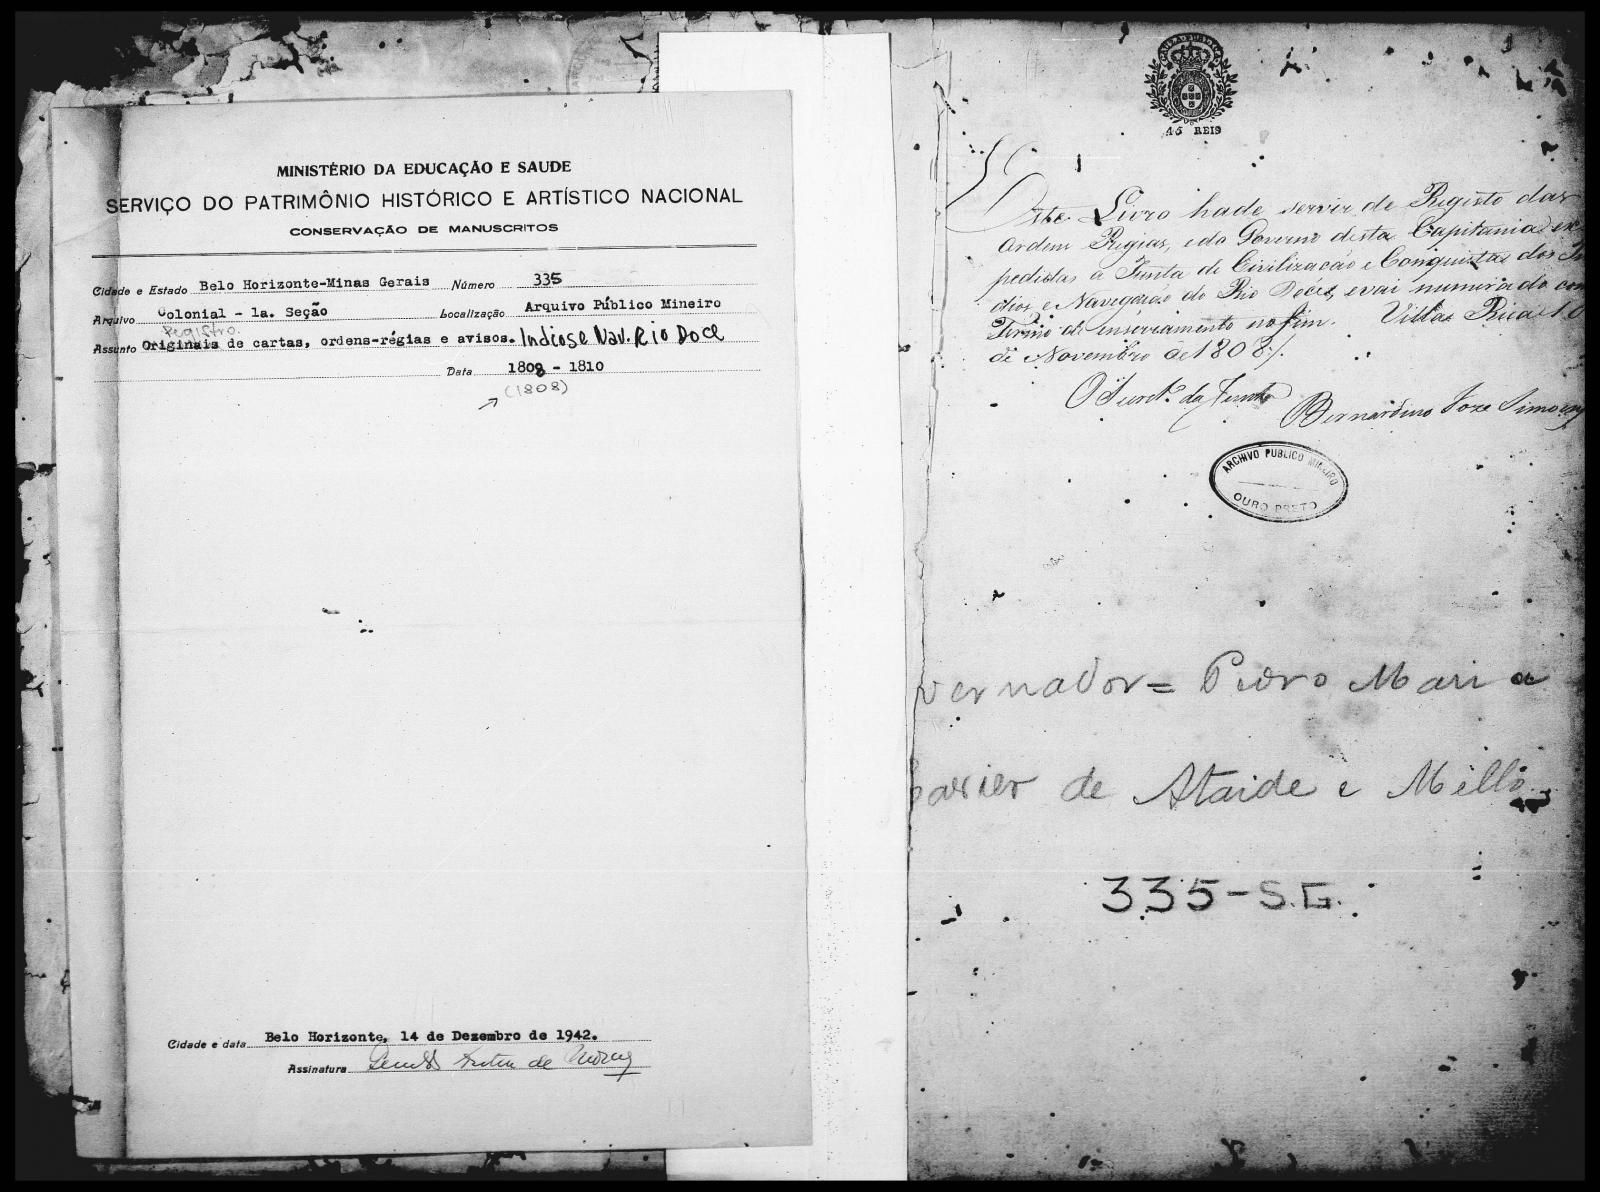 MINISTÉRIO DA EDUCAÇÃO E SAUDE
SERVIÇO DO PATRIMÔNIO HISTÓRICO E ARTÍSTICO NACIONAL
CONSERVAÇÃO DE MANUSCRITOS
Cidade e Estado Belo Horizonte-Minas Gerais Número 335
Arquivo Colonial - 1a. Seção Localização Arquivo Público Mineiro
Registro.
Assunto Originais de cartas, ordens-régias e avisos. Indiose Nav. Rio Doce
Data 1808 - 1810
(1808)
Cidade e data Belo Horizonte, 14 de Dezembro de 1942.
Assinatura de
CAUZA PUBLICA
45 REIS
Este Livro hade servir de Registo das
Ordens Regias, e do Governo desta Capitania ex
pedidas a Junta de Civilização e Conquista dos In
dios, e Navegação do Rio Doce, e vai numerado com
Termo de enserramento no fim. Villa Rica 10
de Novembro de 1808.
O Secret.º da Junta
Bernardino Joze Simoens
ARCHIVO PUBLICO MINEIRO
OURO PRETO
vernador = Pedro Maria
xavier de Ataide e Mello
335-S.G.